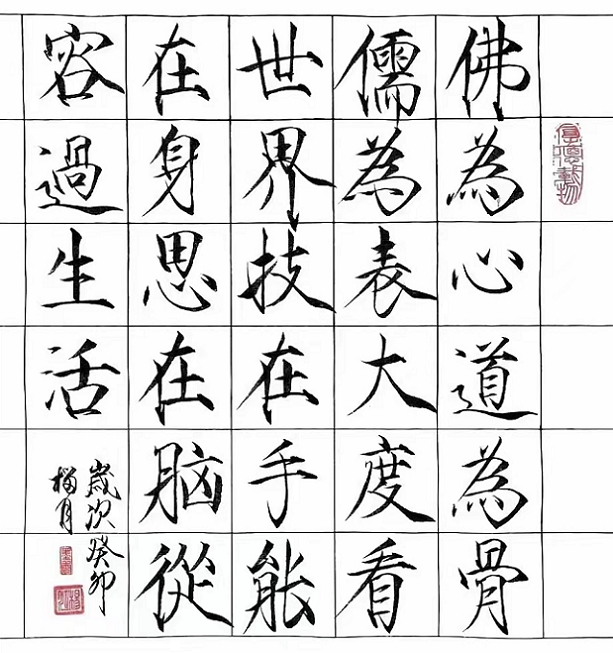 厚德載物
佛為心道為骨
儒為表大度看
世界技在手能
在身思在脑從
容過生活
歲次癸卯
榴月